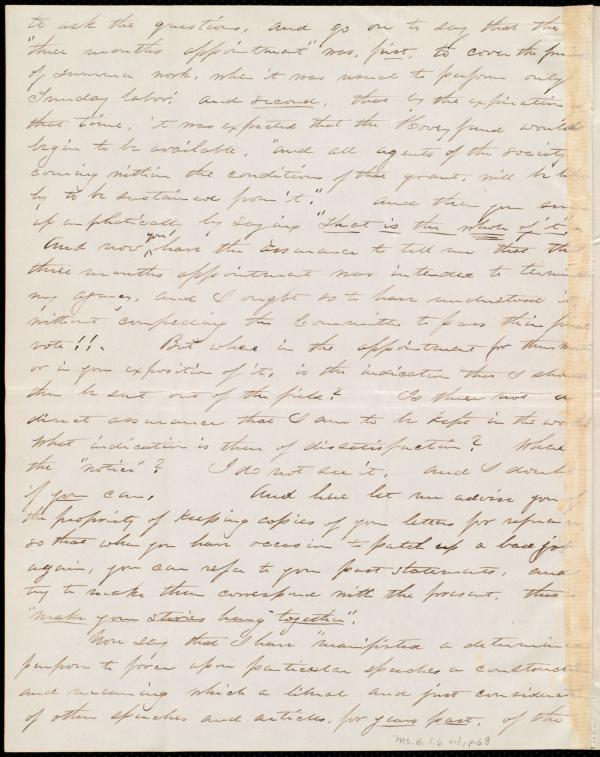 to ask the questions, and go on to say that the
"three months appointment" was, first, to cover the
of summer work, when it was usual to perform only
Sunday labor: and second, that by the expiration
that time, it was expected that the Hovey fund would
begin to be available, "and all agents of the society
coming within the conditions of that grant, will be
by to be sustained from it." And then you
up emphatically by saying "that is the whole of it"
And now you have the assurance to tell me that the
three months appointment was intended to
my agency, and I ought so to have understood it,
without compelling the Committee to pass their
vote!!. But where in the appointment for three
or in your exposition of it, is the indication that I should
then be sent out of the field? Is there not a
direct assurance that I am to be kept in the
What indication is there of dissatisfaction? Where
the "notice"? I do not see it, and I doubt
if you can. And here let me advise you of
the propriety of keeping copies of your letters for
so that when you have occasion to patch up a bad job
again, you can refer to your past statements, and
try to make them correspond with the present, thus
"make your stories hang together".
You say that I have "manifested a determined
purpose to force upon particular speeches a
and meaning which a liberal and just
of other speeches and articles, for years past, of the
Ms. B. 1. 6 p. 69